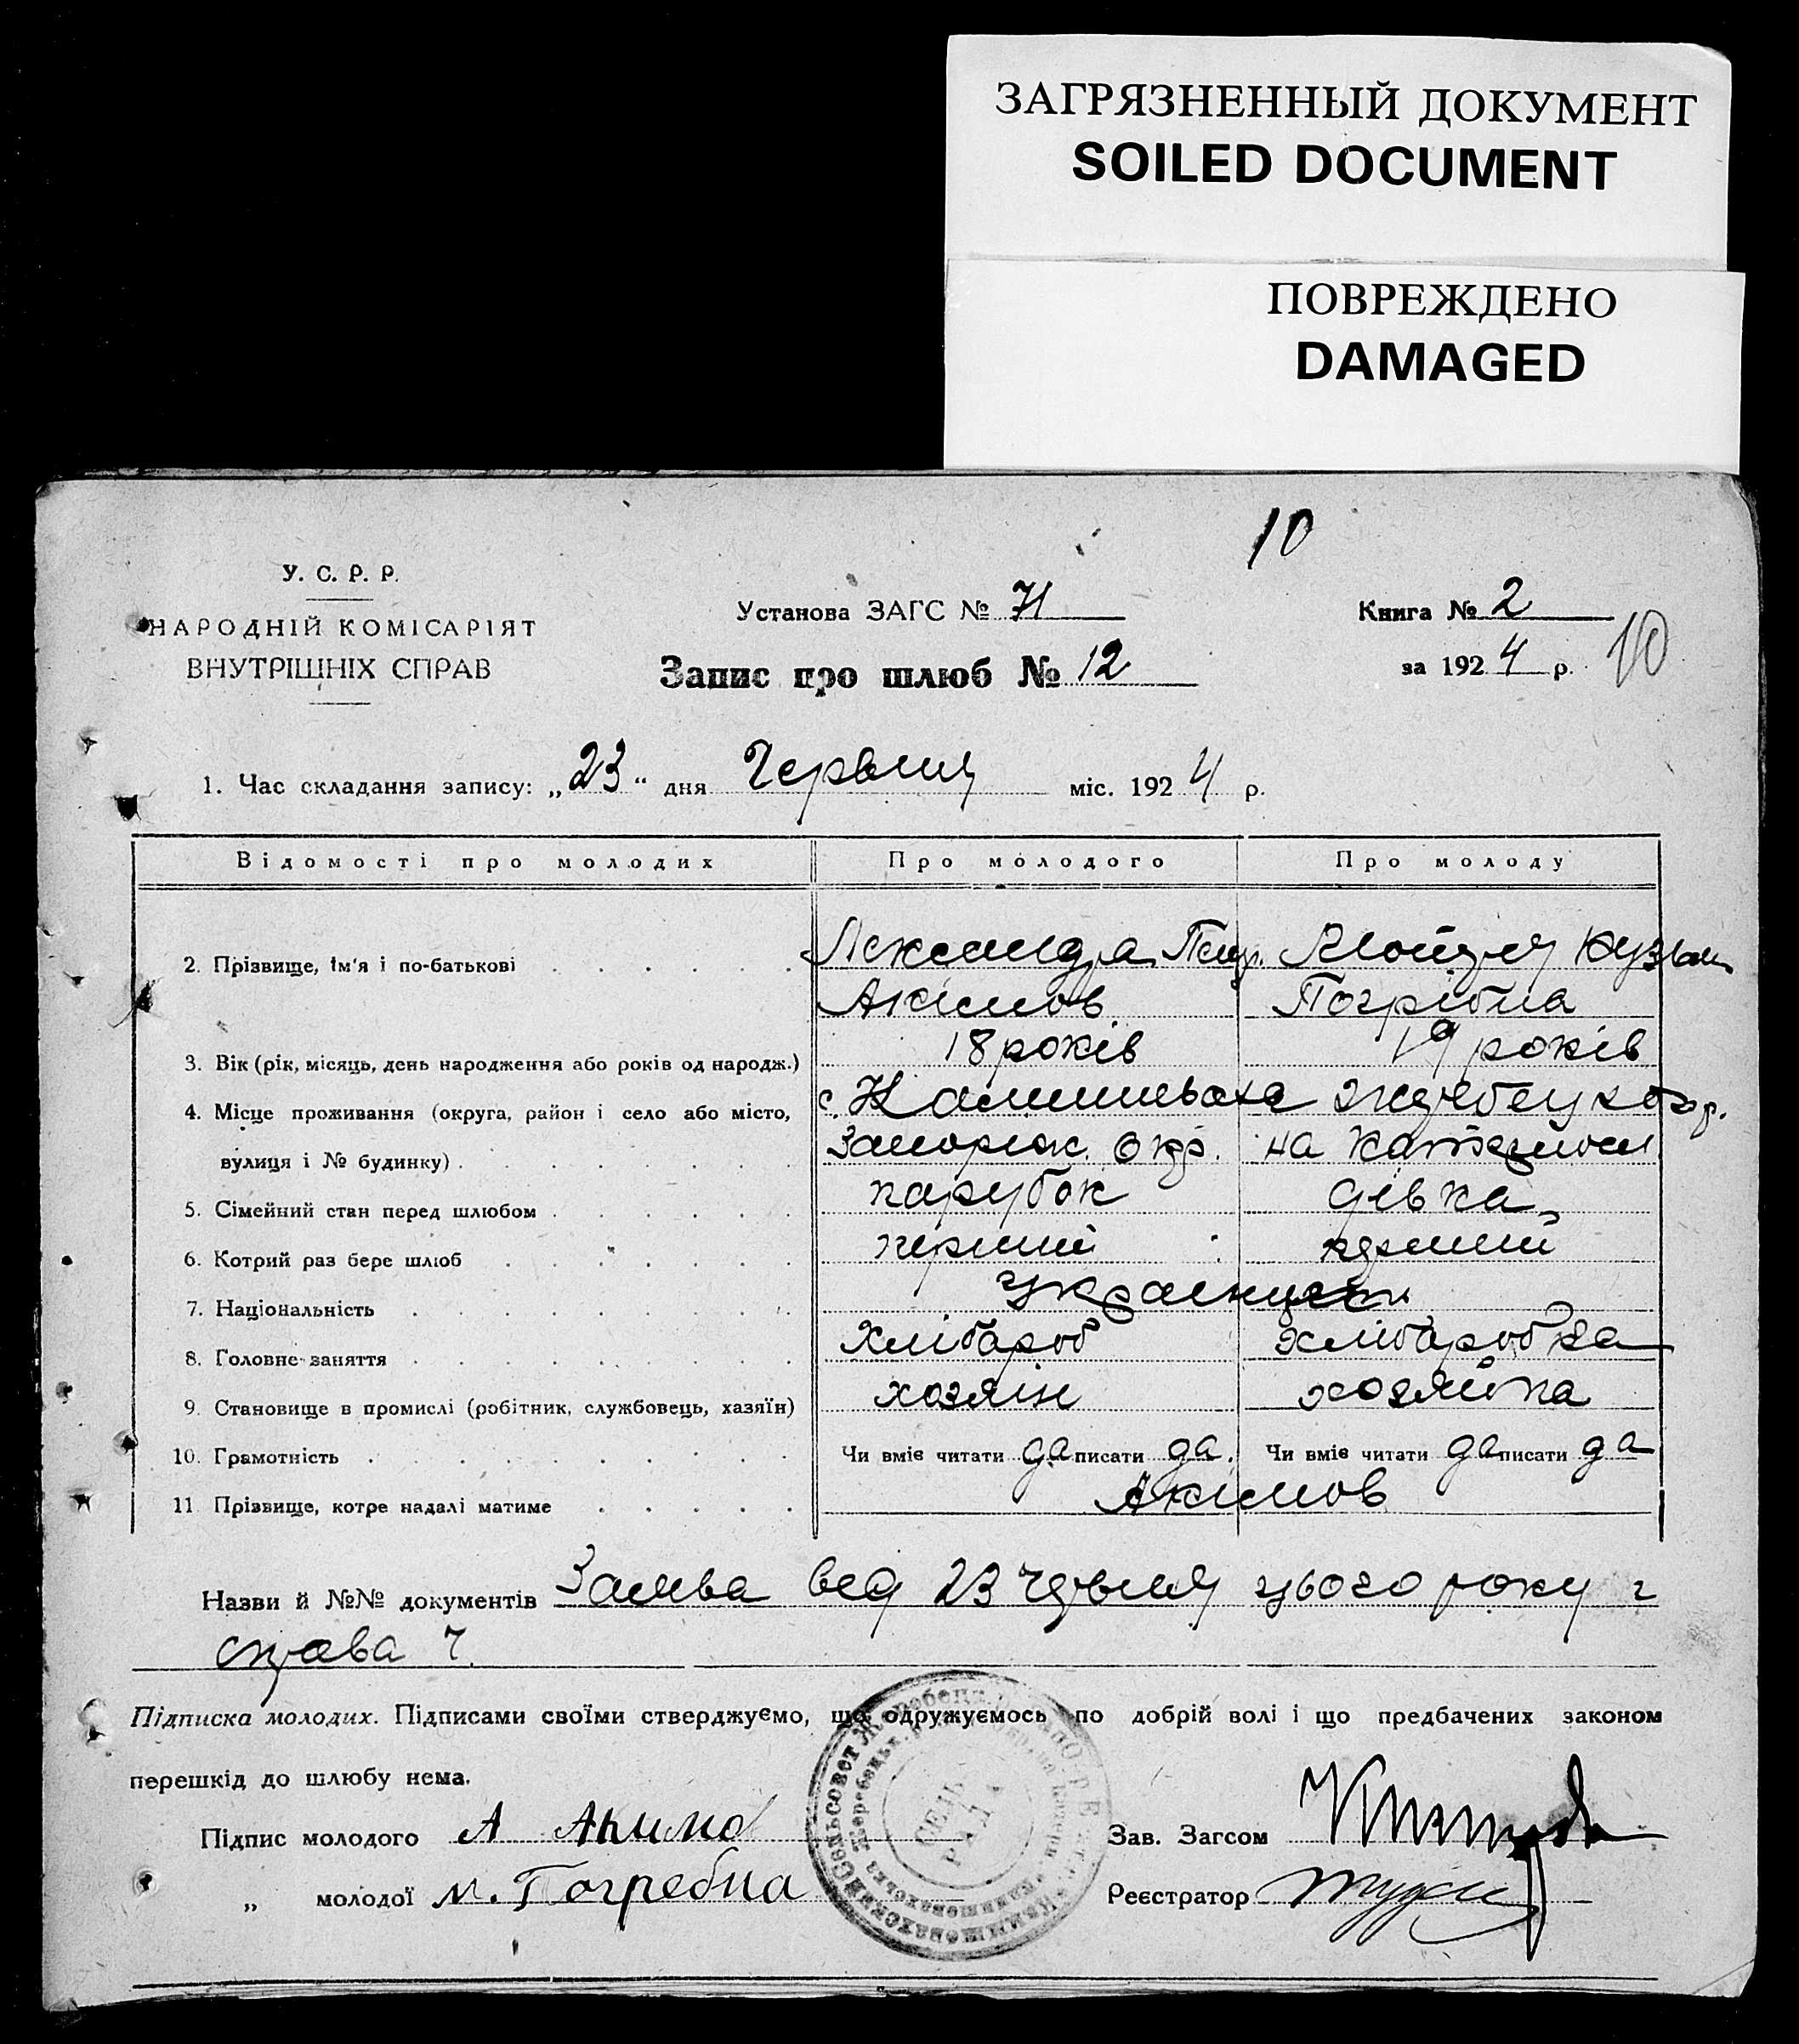 ЗАГРЯЗНЕННЫЙ ДОКУМЕНТ
SOILED DOCUMENT
ПОВРЕЖДЕНО
DAMAGED
10
У. С. Р. Р.
НАРОДНІЙ КОМІСАРІЯТ
ВНУТРІШНІХ СПРАВ
Установа ЗАГС № 71
Книга № 2
Запис про шлюб № 12
за 1924 р.
10
1. Час складання запису: „23“ дня Червня міс. 1924 р.
Відомості про молодих Про молодого Про молоду
2. Прізвище, ім'я і по-батькові
Акімов Погрібна
3. Вік (рік, місяць, день народження або років од народж.) 18 років 19 років
4. Місце проживання (округа, район і село або місто, с. Камишеваха
вулиця і № будинку) Запоріж. Окр.
5. Сімейний стан перед шлюбом парубок дівка
6. Котрий раз бере шлюб перший перший
7. Національність
8. Головне заняття Хлібароб хлібаробка
9. Становище в промислі (робітник, службовець, хазяїн) хозяін хозяйка
10. Грамотність Чи вміє читати да писати да. Чи вміє читати да писати да
11. Прізвище, котре надалі матиме Акімов
Назви й №№ документів Заява від 23 червня цього року
справа
Підписка молодих. Підписами своїми стверджуємо, що одружуємось по добрій волі і що предбачених законом
перешкід до шлюбу нема.
Підпис молодого А Акимов
Зав. Загсом
„ молодої М. Погребна
Реєстратор
СЕЛЬ
РАД